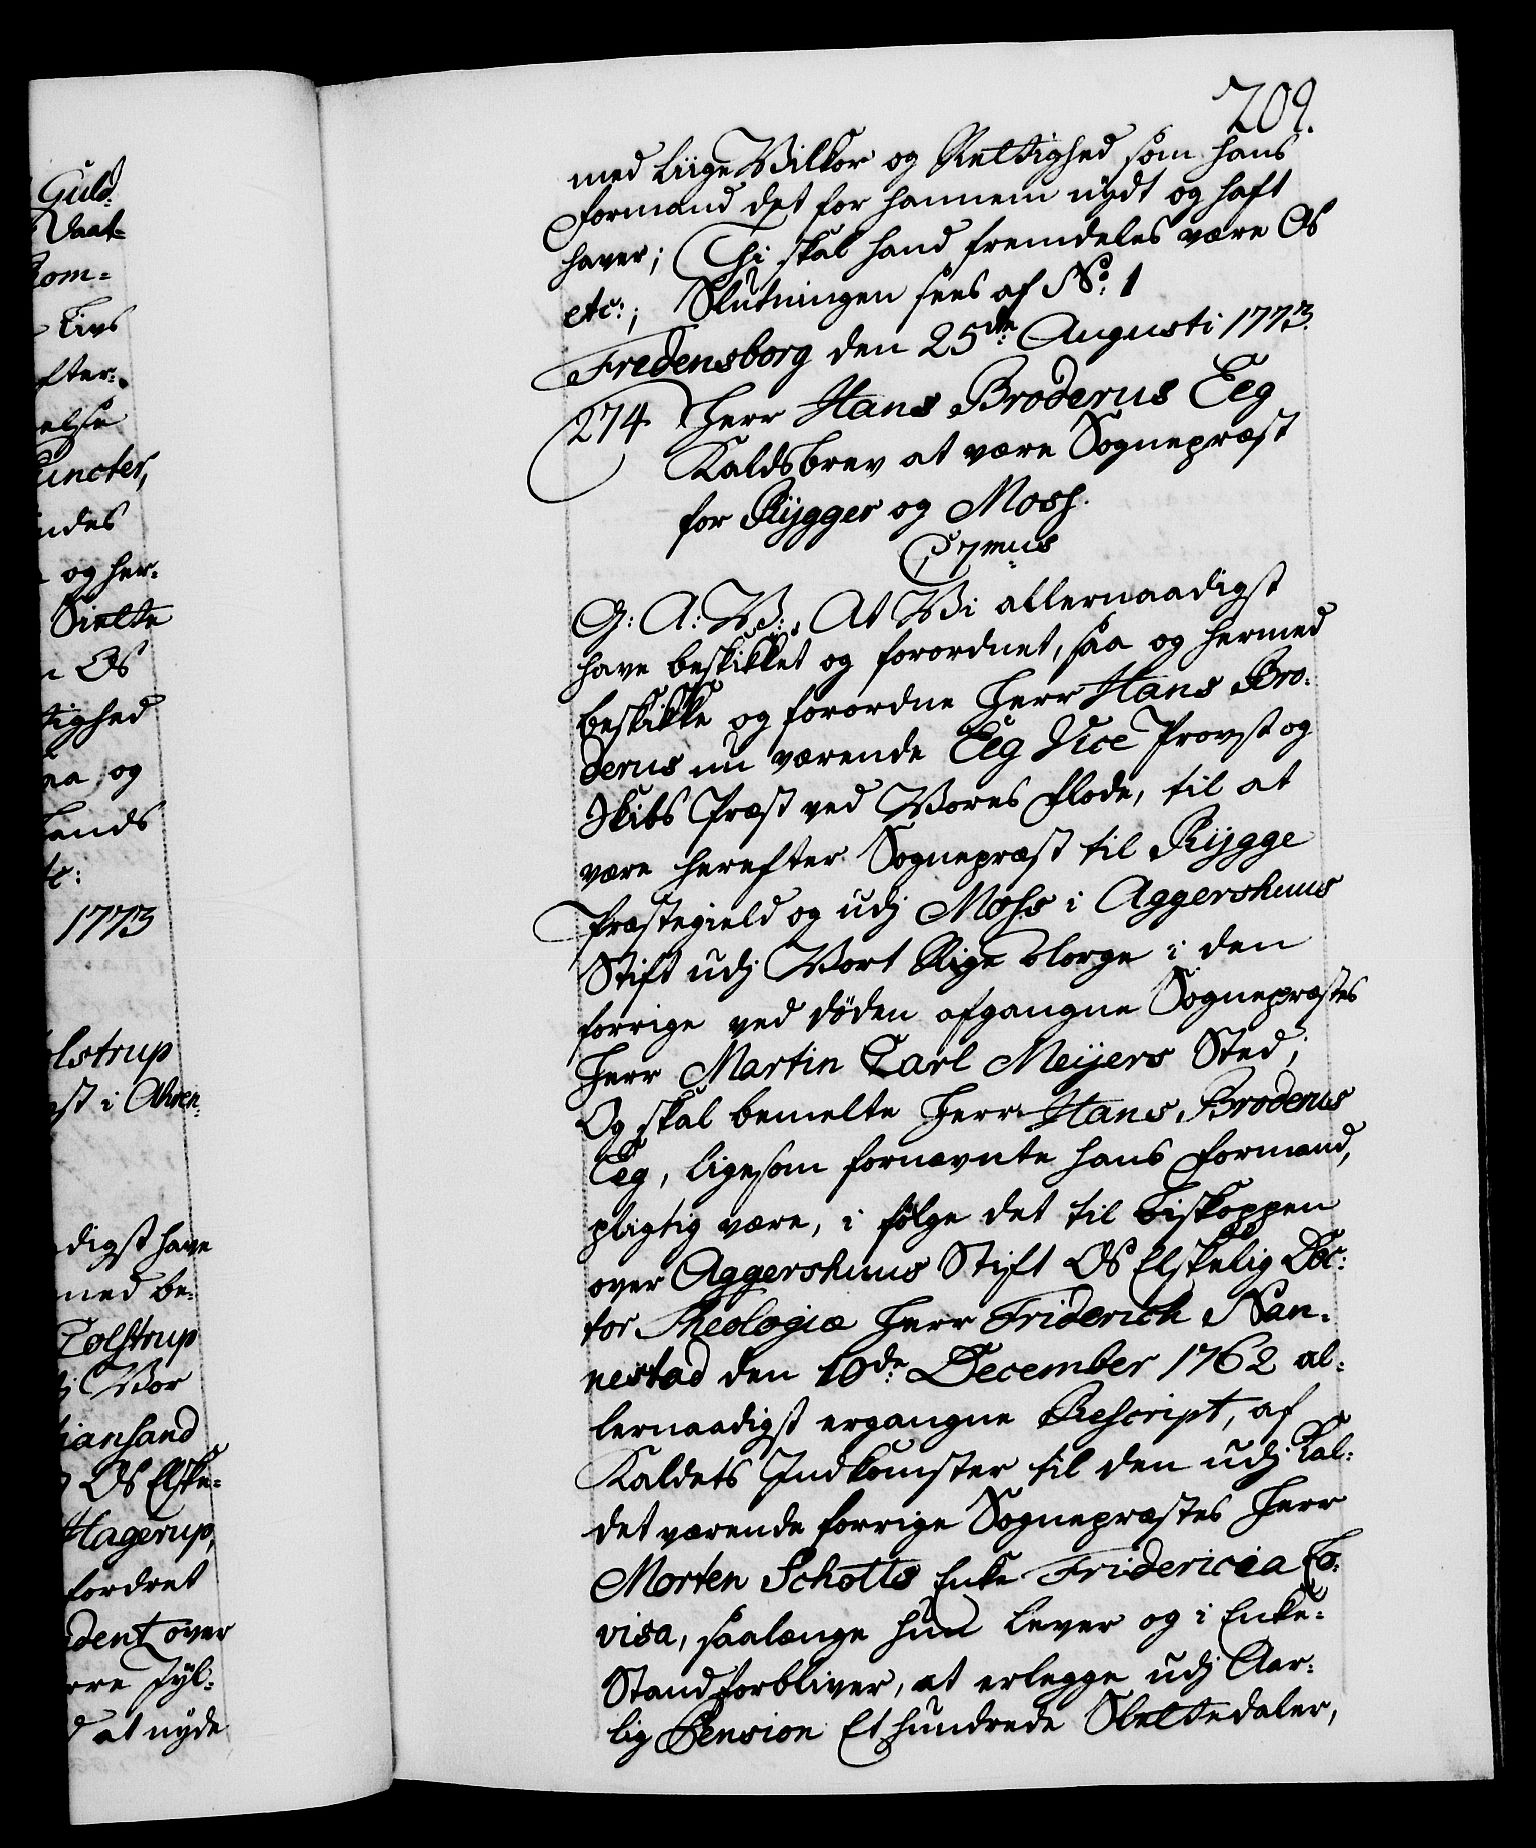 209.
med liige Vilkor og Rettighed som hans
Formand det for hannem nÿdt og haft
haver; Thi skal hand fremdeles være Os
etc:; Slutningen sees af No: 1
Fredensborg den 25de Augusti 1773.
274. Herr Hans Broderus Eeg
Kaldsbrev at være Sognepræst
for Rÿgger og Moss.
G: A: V: At Vi allernaadigst
have beskikket og forordnet, saa og hermed
beskikke og forordne Herr Hans Bro-
derus nu værende Eeg Vice Provst og
Skibs Præst ved Vores Flode, til at
være herefter Sognepræst til Rÿgge
Præstegield og udj Mohs i Aggershuus
Stift udj Vort Rige Norge i den
forrige ved Døden afgangne Sognepræstes
Herr Martin Carl Meÿers Sted;
Og skal bemelte Herr Hans Broderus
Eeg, ligesom fornævnte hans Formand,
pligtig være, i følge det til Biskoppen
over Aggershuus Stift Os Elskelig Doc-
tor Theologiæ Herr Friderich Nan-
nestad den 10de December 1762 al-
lernaadigst ergangne Rescript, af
Kaldets Indkomster til den udj Kal-
det værende forrige Sognepræstes Herr
Morten Schotts Enke Fridericia Lo-
visa, saalænge hun lever og i Enke-
Stand forbliver, at erlegge udj Aar-
lig Pension Et hundrede Slettedaler,
Guld-
Vaat-
Kom-
Livs
fter-
else
Puncter,
ndes
og her-
Sielte
Os
tighed
aa og
Lands
tc:
1773
olstrup
st i Ahren-
digst have
med be-
Tolstrup
Vor
iansand
Os Elske-
Hagerup,
fordret
dent over
re Fÿl-
at nyde